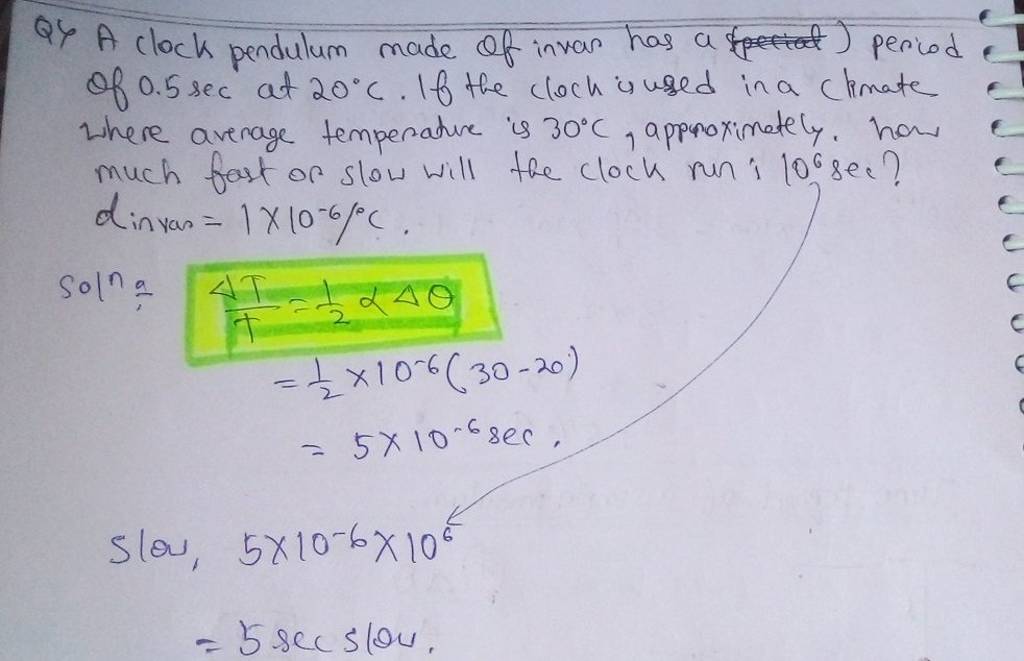 Q4 A clock pendulum made of invar has a period
of 0.5 sec at 20°C. If the clock is used in a climate
where average temperature is 30°C, approximately. how
much fast or slow will the clock run i 10⁶ sec?
αinvar = 1 X 10⁻⁶/°C.
Solⁿ:
ΔT/T = 1/2 α Δθ
= 1/2 × 10⁻⁶ (30 - 20)
= 5 X 10⁻⁶ sec.
Slow, 5X10⁻⁶X10⁶
= 5 sec slow.